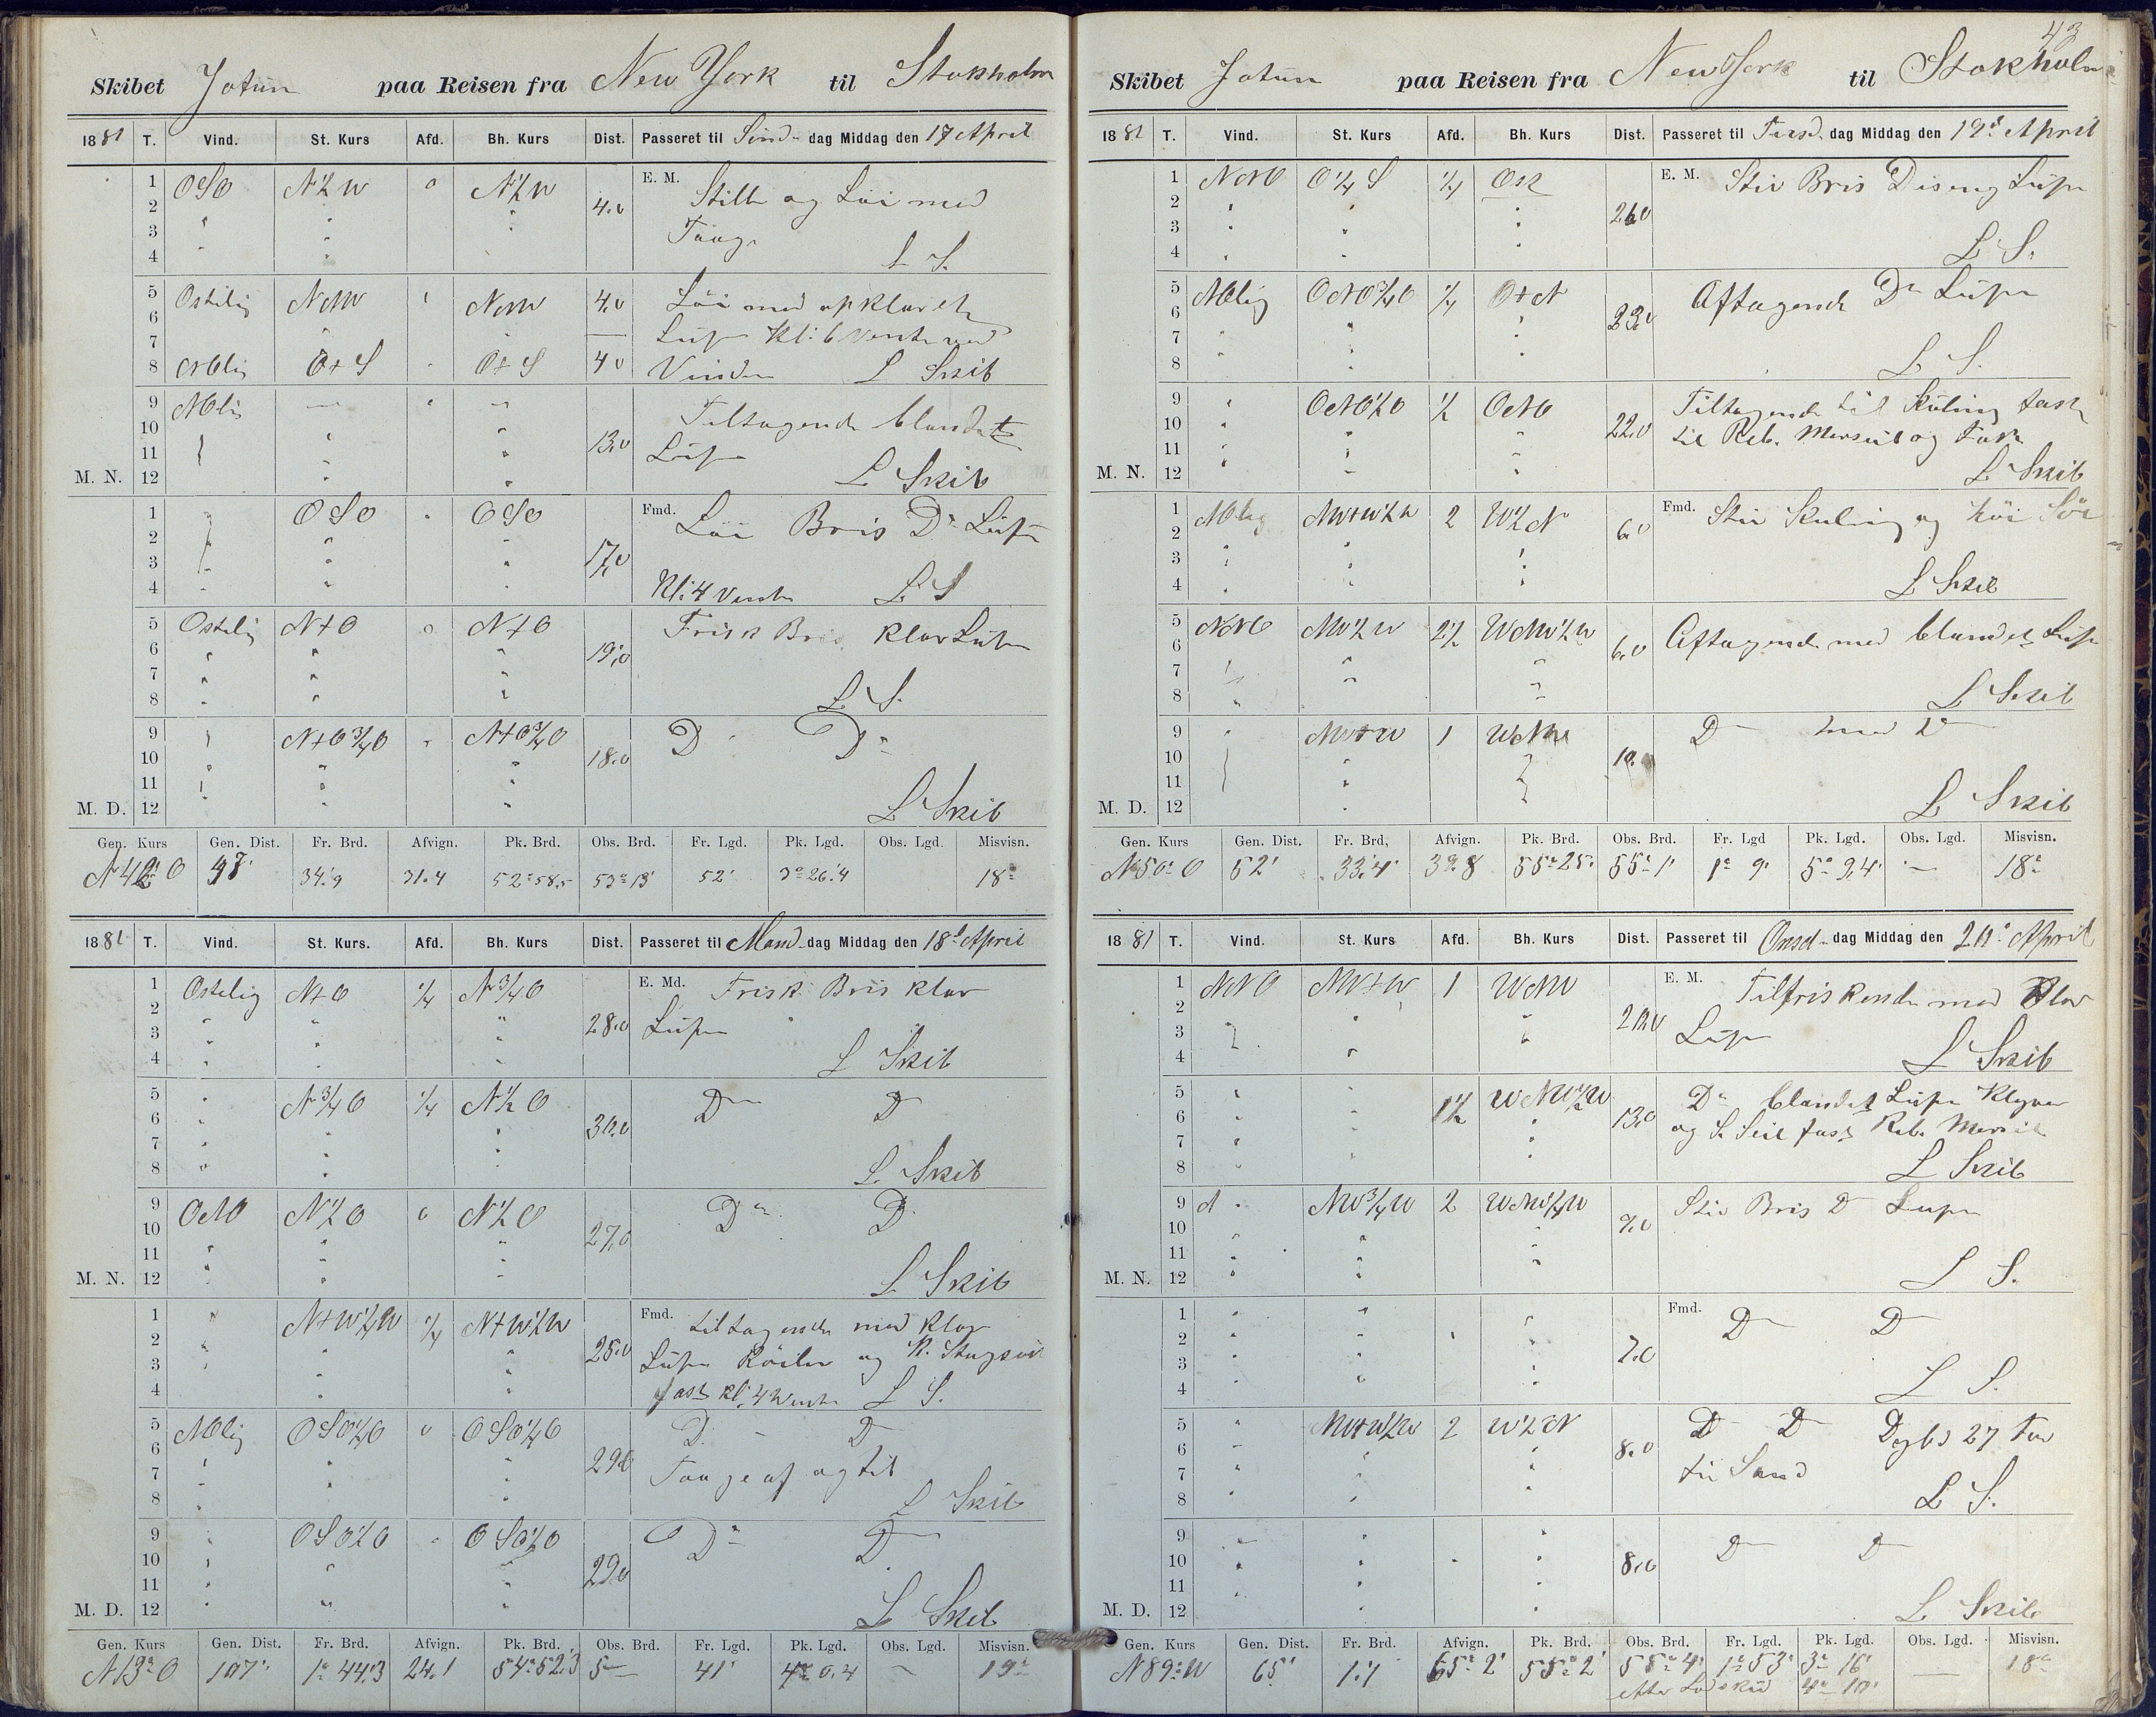 Skibet Jotun paa Reisen fra New York til Stokholm
1881 T. Vind. St. Kurs Afd. Bh. Kurs Dist. Passeret til Sönd- dag Middag den 17 April
1 OSO N½W 0 N½W E. M. Stille og Löi med
2 4.0
3 Taage
4 L S.
5 Ostelig NNW NNW 4.0 Löi med opklaret
6 Luft Kl: 6 Vendte med
7
8 NOlig O+S O+S 4.0 Vinden L Skib
9 NOlig Tiltagende blandet
10 13.0
11 Luft
M. N. 12 L Skib
1 OSO OSO Fmd. Löi Bris Do Luft
2 17.0
3
4 Kl: 4 Vendte L S
5 Ostelig N+O 0 N+O Frisk Bris Klar Luft
6 19.0
7
8 L. S.
9 N+O¾O N+O¾O D Do
10 18.0
11
M. D. 12 L Skib
Gen. Kurs Gen. Dist. Fr. Brd. Afvign. Pk. Brd. Obs. Brd. Fr. Lgd. Pk. Lgd. Obs. Lgd. Misvisn.
N42°O 47' 34.'9 31.4 52°58.5 53°13' 52' 3°26.'4 18°
1881 T. Vind. St. Kurs. Afd. Bh. Kurs Dist. Passeret til Mand- dag Middag den 18d April
1 Ostelig N+O ¼ N¾O E. Md. Frisk Bris Klar
2 28.0
3 Luft
4 L Skib
5 N¾O ¼ N½O Do D
6 30.0
7
8 L. Skib
9 ONO N½O 0 N½O Do D
10 27.0
11
M. N. 12 L Skib
1 N+W½W ¼ N+W½W Fmd. tiltagende med Klar
2 25.0
3 Luft Röiler og K. Stagseil
4 fast Kl: 4 Vendte L S.
5 NOlig OSO¼O 0 OSO¼O D. D
6 29.0
7 Taage af og til
8 L Skib
9 OSO½O OSO½O Do D
10 29.0
11
M. D. 12 L Skib
Gen. Kurs Gen. Dist. Fr. Brd. Afvign. Pk. Brd. Obs. Brd. Fr. Lgd. Pk. Lgd. Obs. Lgd. Misvisn.
N13°O 107' 1°44.'3 24.1 54°52.'3 41' 4°0.4 19°
43
Skibet Jotun paa Reisen fra New York til Stokholm
1881 T. Vind. St. Kurs Afd. Bh. Kurs Dist. Passeret til Tirsd- dag Middag den 19d April
1 NNO O¼S ¼ Ost E. M. Stiv Bris Diseng Luft
2 26.0
3
4 L S.
5 NOlig ONO¾O ¼ O+N Aftagende Do Luft
6 23.0
7
8 L S.
9 ONO½O ½ ONO Tiltagende til Kuling fast
10 22.0 til Reb. Merseil og Fok
11
M. N. 12 L Skib
1 NOlig NW+W½W 2 W½N Fmd. Stiv Kuling og höi Sö
2 6.0
3
4 L Skib
5 NNO NW½W 2½ WNW½W Aftagende med blandet Luft
6 6.0
7
8 L Skib
9 NW+W 1 WNW D med D
10 10.
11
M. D. 12 L Skib
Gen. Kurs Gen. Dist. Fr. Brd, Afvign. Pk. Brd. Obs. Brd. Fr. Lgd Pk. Lgd. Obs. Lgd. Misvisn.
N50°O 52' 33.'4' 39.8 55°25' 55°1' 1°9' 5°9,4' — 18°
1881 T. Vind. St. Kurs Afd. Bh. Kurs Dist. Passeret til Onsd- dag Middag den 20d April
1 NNO NW+W 1 WNW E. M. Tilfriskende med Klar
2 20.0
3 Luft
4 L Skib
5 1½ WNW½W Do blandet Luft Klyver
6 13.0 og S. Seil fast Reb. Merseil
7
8 L Skib
9 NW¾W 2 WNW¼W Stiv Bris D Luft
10 9.0
11
M. N. 12 L S.
1 Fmd. D D
2 7.0
3
4 L S.
5 NW+W½W 2 W½N D D Dybd 27 Fav
6 8.0
7 fin Sand
8 L S.
9 D D
10 8.0
11
M. D. 12 L Skib
Gen. Kurs Gen. Dist. Fr. Brd. Afvign. Pk. Brd. Obs. Brd. Fr. Lgd. Pk. Lgd. Obs. Lgd. Misvisn.
N89°W 65' 1.'1 65°2' 55°2' 55°4' 1°53' 3°16' — 18°
efter Lodskud 4°10'